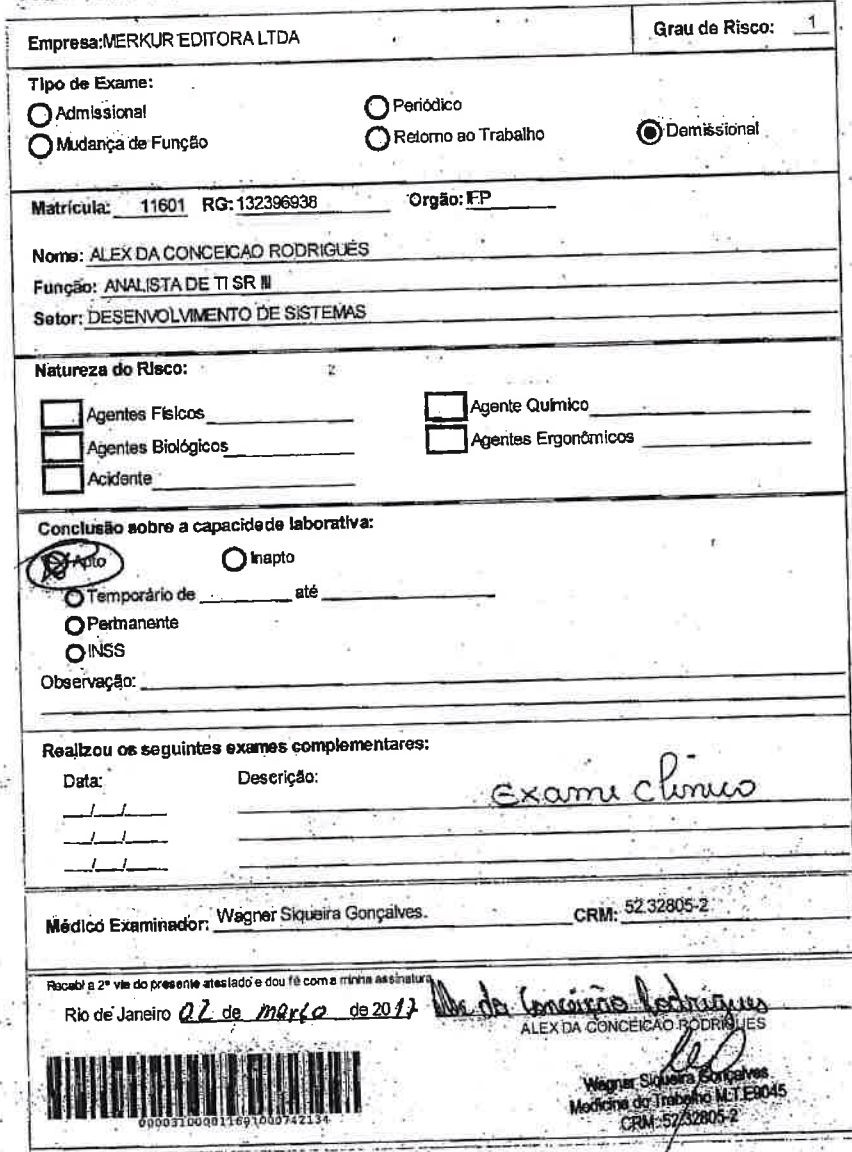 Empresa:MERKUR EDITORA LTDA Grau de Risco: 1
Tipo de Exame:
Admissional Periódico
Mudança de Função Retorno ao Trabalho Demissional
Matrícula: 11601 RG: 132396938 Orgão: IFP
Nome: ALEX DA CONCEICAO RODRIGUES
Função: ANALISTA DE TI SR III
Setor: DESENVOLVIMENTO DE SISTEMAS
Natureza do Risco:
Agentes Físicos Agente Químico
Agentes Biológicos Agentes Ergonômicos
Acidente
Conclusão sobre a capacidade laborativa:
Apto Inapto
Temporário de até
Permanente
INSS
Observação:
Realizou os seguintes exames complementares:
Data: Descrição:
Exame clínico
Médico Examinador: Wagner Siqueira Gonçalves. CRM: 52.32805-2
Recebi a 2ª via do presente atestado e dou fé com a minha assinatura
Rio de Janeiro 02 de março de 2017 da Conceição Rodrigues
ALEX DA CONCEICAO RODRIGUES
Wagner Siqueira Gonçalves
Medicina do Trabalho M.T.E9045
CRM: 52/32805-2